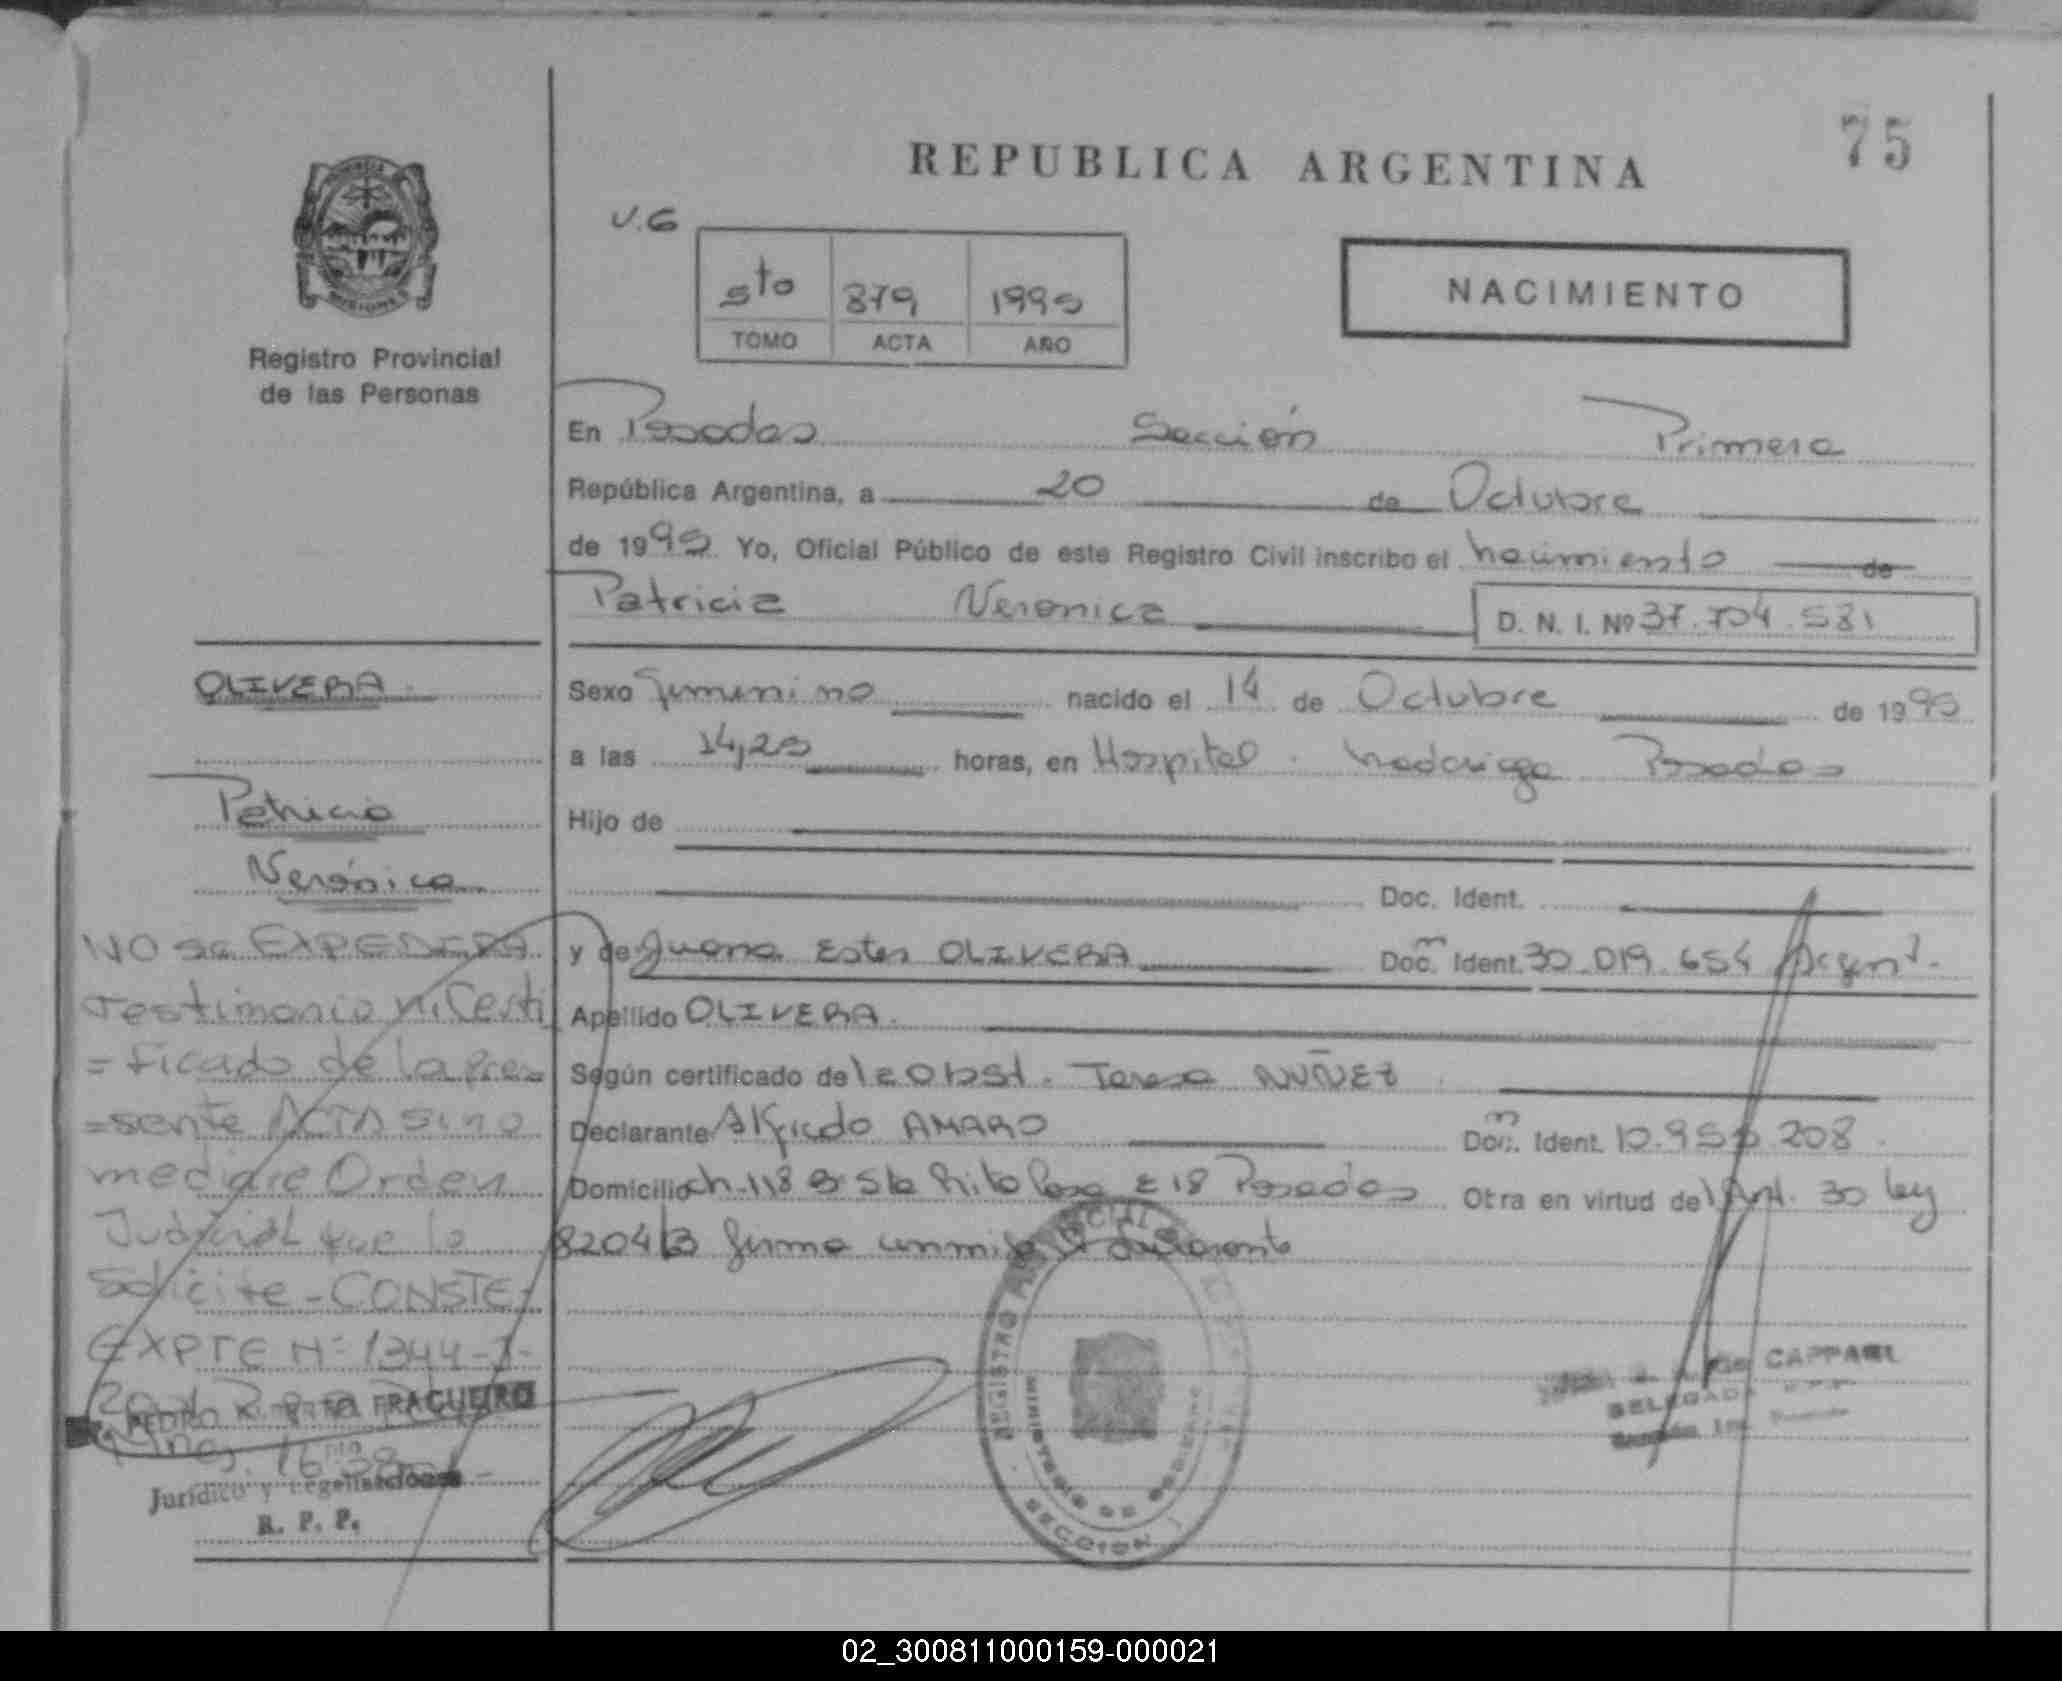 75
REPUBLICA ARGENTINA
V.G
5to 879 1995
TOMO ACTA AÑO
NACIMIENTO
Registro Provincial
de las Personas
En Posadas Sección Primera
República Argentina, a 20 de Octubre
de 1995 Yo, Oficial Público de este Registro Civil inscribo el nacimiento de
Patricia Veronica D. N. I. Nº 37.704.581
Sexo femenino nacido el 14 de Octubre de 1995
a las 14,25 horas, en Hospital Madariaga Posadas
Hijo de
Doc. Ident.
y de Juana Ester OLIVERA Doc. Ident. 30.019.654 Argent.
Apellido OLIVERA.
Según certificado de la Obst. Teresa NUÑEZ
Declarante Alfredo AMARO Doc. Ident. 10.955.208.
Domicilio ch. 118 Sta Rita Posadas Otra en virtud del Art. 30 ley
8204/63 firma declarante
OLIVERA
Patricia
Verónica
NO se EXPEDIRA
Testimonio ni Certi
=ficado de la pre=
=sente ACTA sino
mediante Orden
Judicial que lo
Solicite - CONSTE-
EXPTE Nº 1344-
PEDRO FRAGUEIRO
Jurídico y Legalizaciones
R. P. P.
REGISTRO PROVINCIAL
MINISTERIO DE GOBIERNO
SECCION 1
CAPPAEL
DELEGADA
02_300811000159-000021